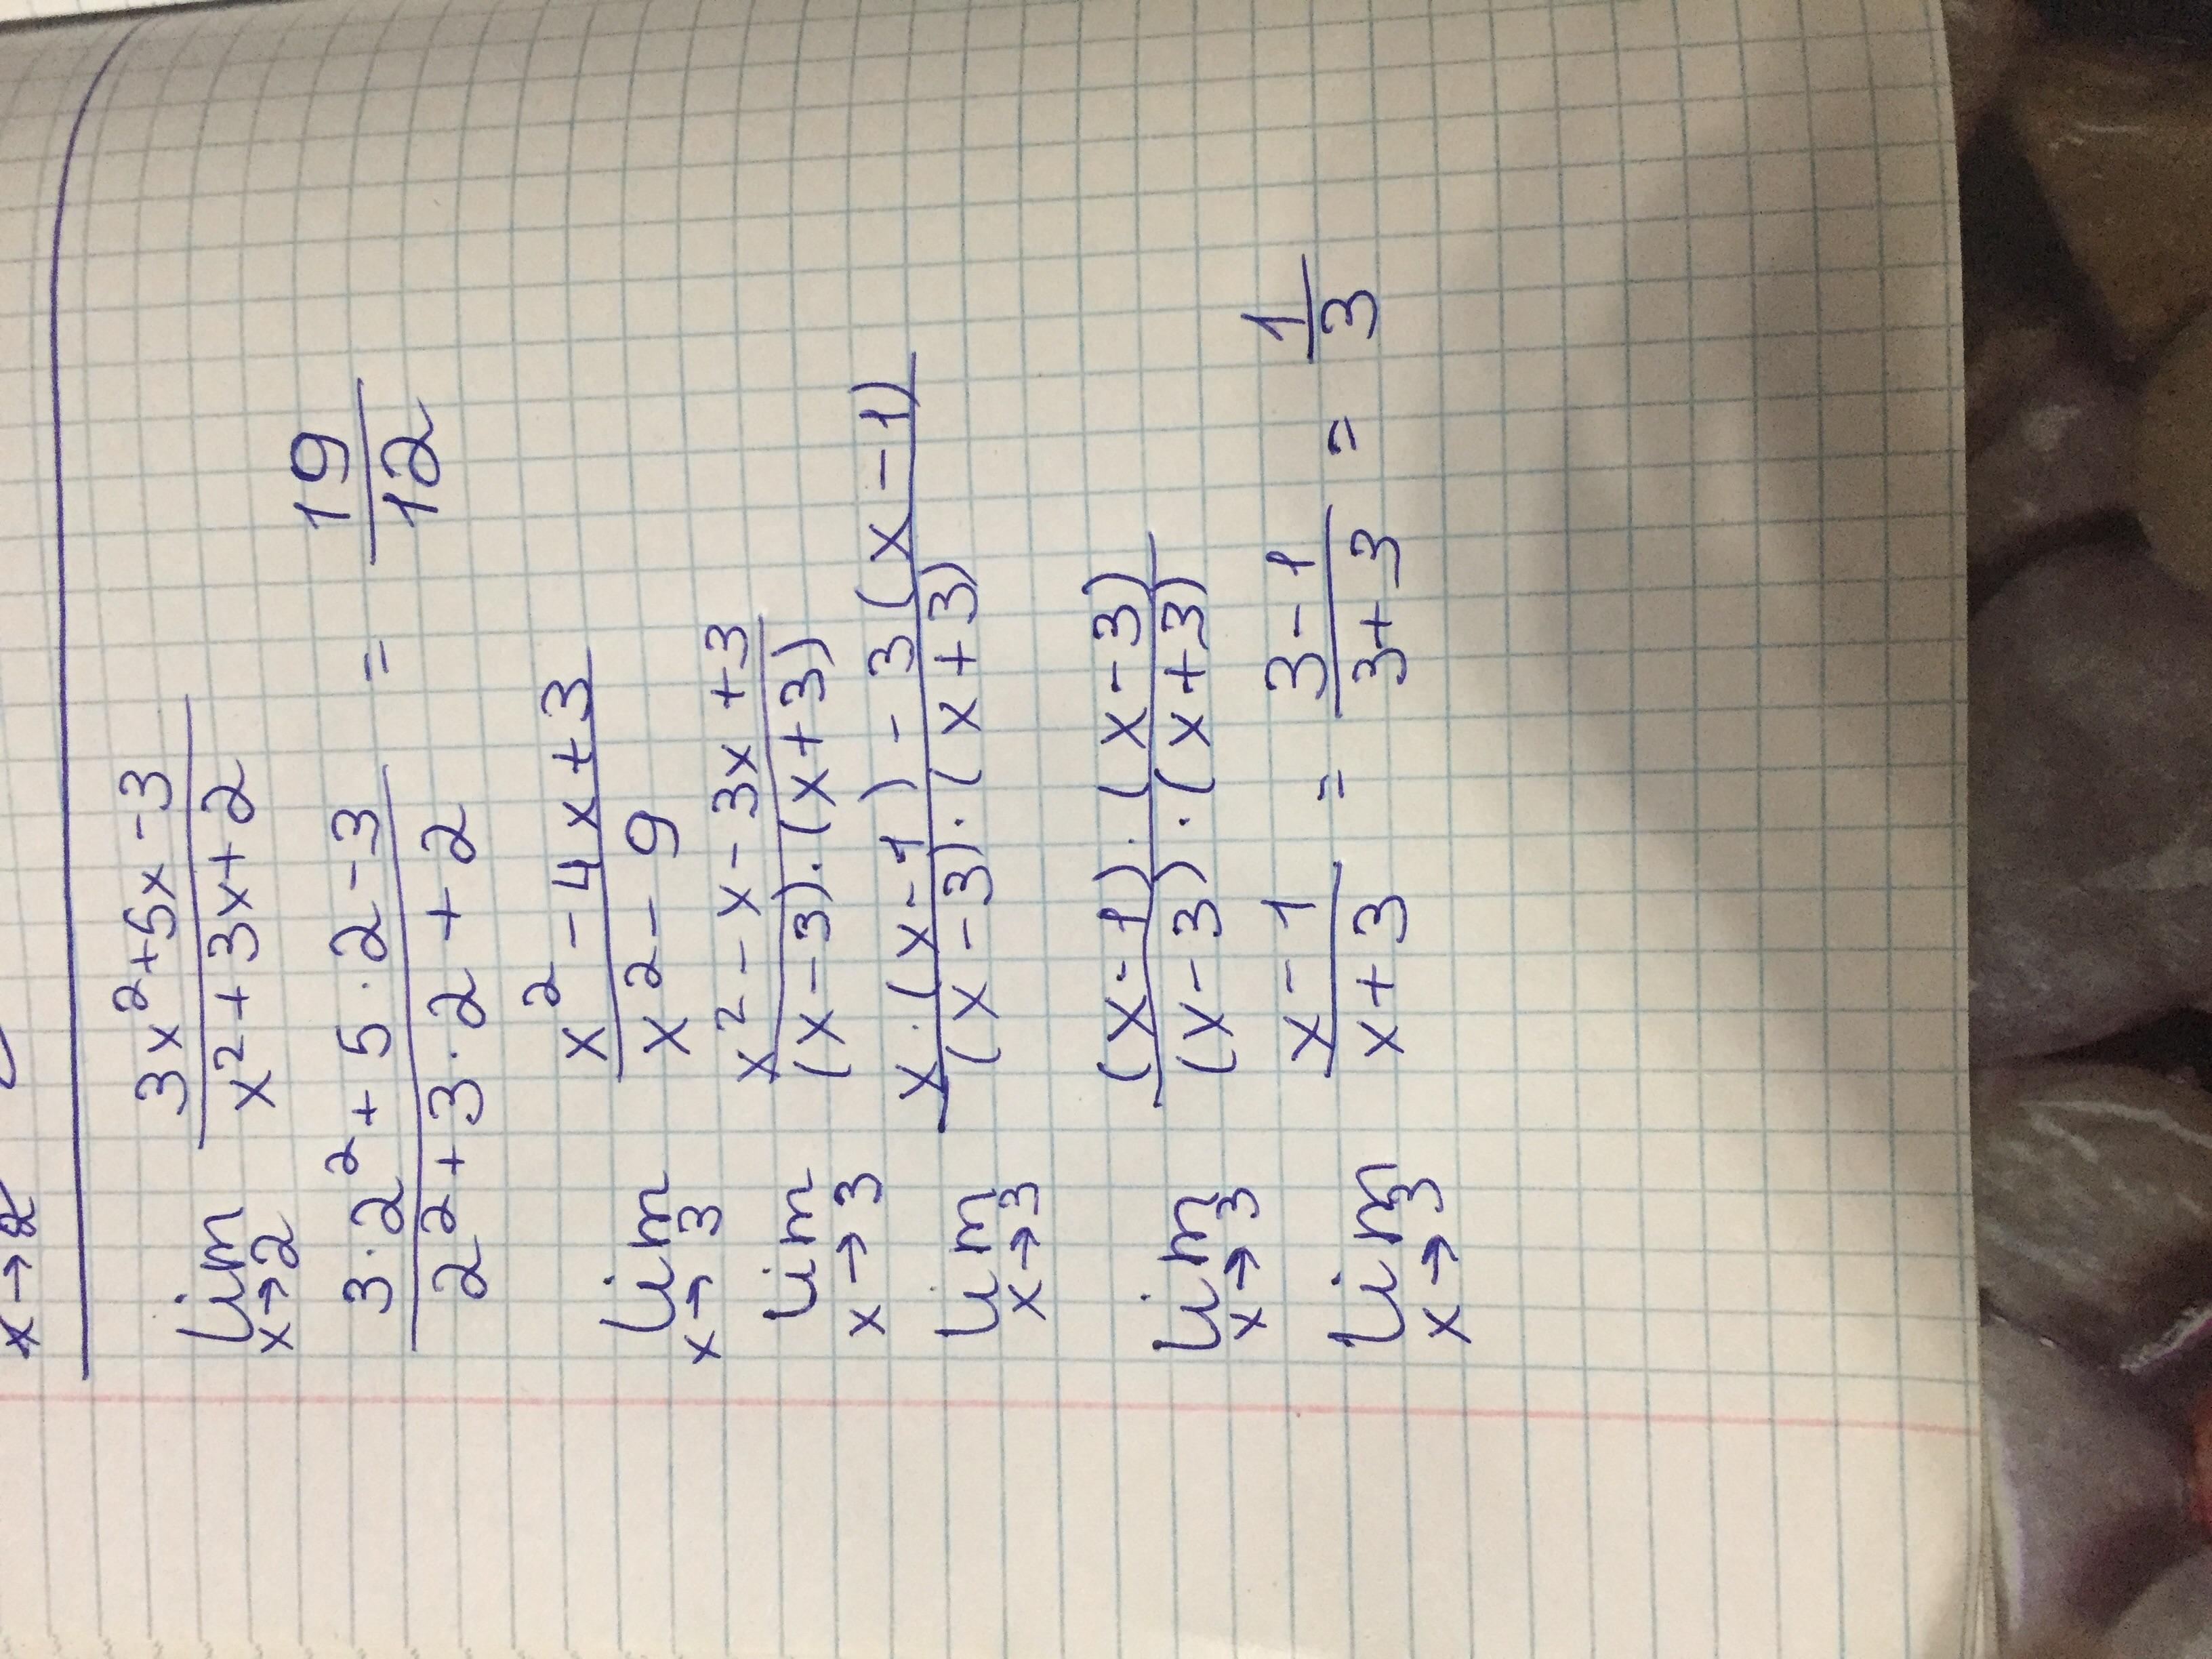 x→2
lim 3x²+5x-3 / x²+3x+2
x→2
3·2²+5·2-3 / 2²+3·2+2 = 19/12
lim x²-4x+3 / x²-9
x→3
lim x²-x-3x+3 / (x-3)·(x+3)
x→3
lim x·(x-1)-3(x-1) / (x-3)·(x+3)
x→3
lim (x-1)·(x-3) / (x-3)·(x+3)
x→3
lim x-1 / x+3 = 3-1 / 3+3 = 1/3
x→3